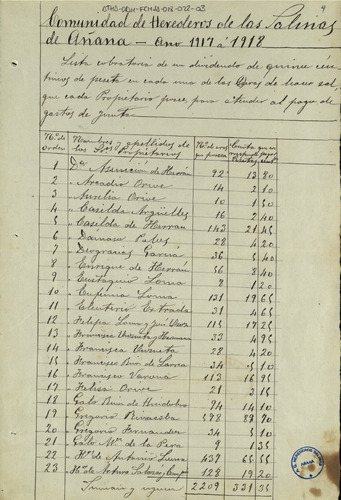 ATHS-DDH-FCHAS-018-022-03
4
Comunidad de Herederos de las Salinas
de Añana — Año 1917 á 1918
Lista cobratoria de un dividendo de quince cén-
timos de peseta en cada una de las Eras de hacer sal,
que cada Propietario posee, para atender al pago de
gastos de Junta.
Nº de orden Nombres y apellidos de los Sres. Propietarios Nº de eras que poseen Cuota Pesetas cts
1 Dª Asunción de Herrán 92 13 80
2 " Arcadio Orive 14 2 10
3 " Aurelia Orive 10 1 50
4 " Casilda Argüelles 16 2 40
5 " Casilda de Herrán 143 21 45
6 " Damaso 28 4 20
7 " Deogracias García 36 5 40
8 " Enrique de Herrán 56 8 40
9 " Eustaquio Loma 8 1 20
10 " Eufemia Loma 131 19 65
11 " Eleuterio Estrada 31 4 65
12 " Felipa Loma y José 115 17 25
13 " Francisca y Hermana 33 4 95
14 " Francisca 28 4 20
15 " Francisco de Larrea 34 5 10
16 " Francisco 113 16 95
17 " Felisa Orive 21 3 15
18 " Gato 94 14 10
19 " Gregorio 598 89 70
20 " Gregorio Fernandez 34 5 10
21 " Gato Mª de la Pera 9 1 35
22 " Hºs de Antonio 437 65 55
23 " Hºs de Arturo y Comp 128 19 20
Suman y siguen 2209 331 35
AÑANA